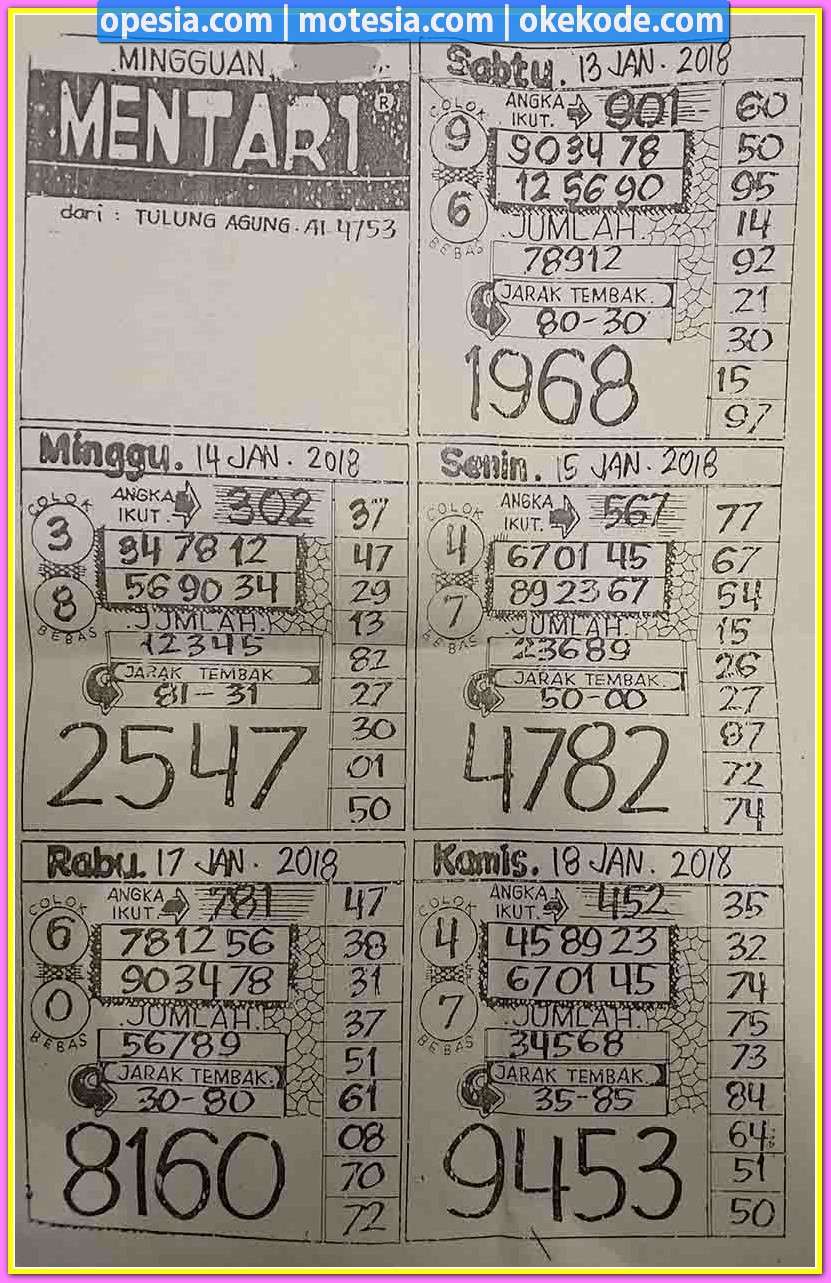 opesia.com | motesia.com | okekode.com
MINGGUAN
MENTARI ®
dari : TULUNG AGUNG. AI 4753
Sabtu. 13 JAN. 2018
COLOK
9
6
BEBAS
ANGKA IKUT. 901
90 34 78
12 56 90
JUMLAH.
78912
JARAK TEMBAK.
80-30
1968
60
50
95
14
92
21
30
15
97
Minggu. 14 JAN. 2018
COLOK
3
8
BEBAS
ANGKA IKUT. 302
34 78 12
56 90 34
JUMLAH.
12345
JARAK TEMBAK
81-31
2547
37
47
29
13
82
27
30
01
50
Senin. 15 JAN. 2018
COLOK
4
7
BEBAS
ANGKA IKUT. 567
67 01 45
89 23 67
JUMLAH.
23689
JARAK TEMBAK.
50-00
4782
77
67
54
15
26
27
87
72
74
Rabu. 17 JAN. 2018
COLOK
6
0
BEBAS
ANGKA IKUT. 781
78 12 56
90 34 78
JUMLAH.
56789
JARAK TEMBAK.
30-80
8160
47
38
31
37
51
61
08
70
72
Kamis. 18 JAN. 2018
COLOK
4
7
BEBAS
ANGKA IKUT. 452
45 89 23
67 01 45
JUMLAH.
34568
JARAK TEMBAK.
35-85
9453
35
32
74
75
73
84
64
51
50